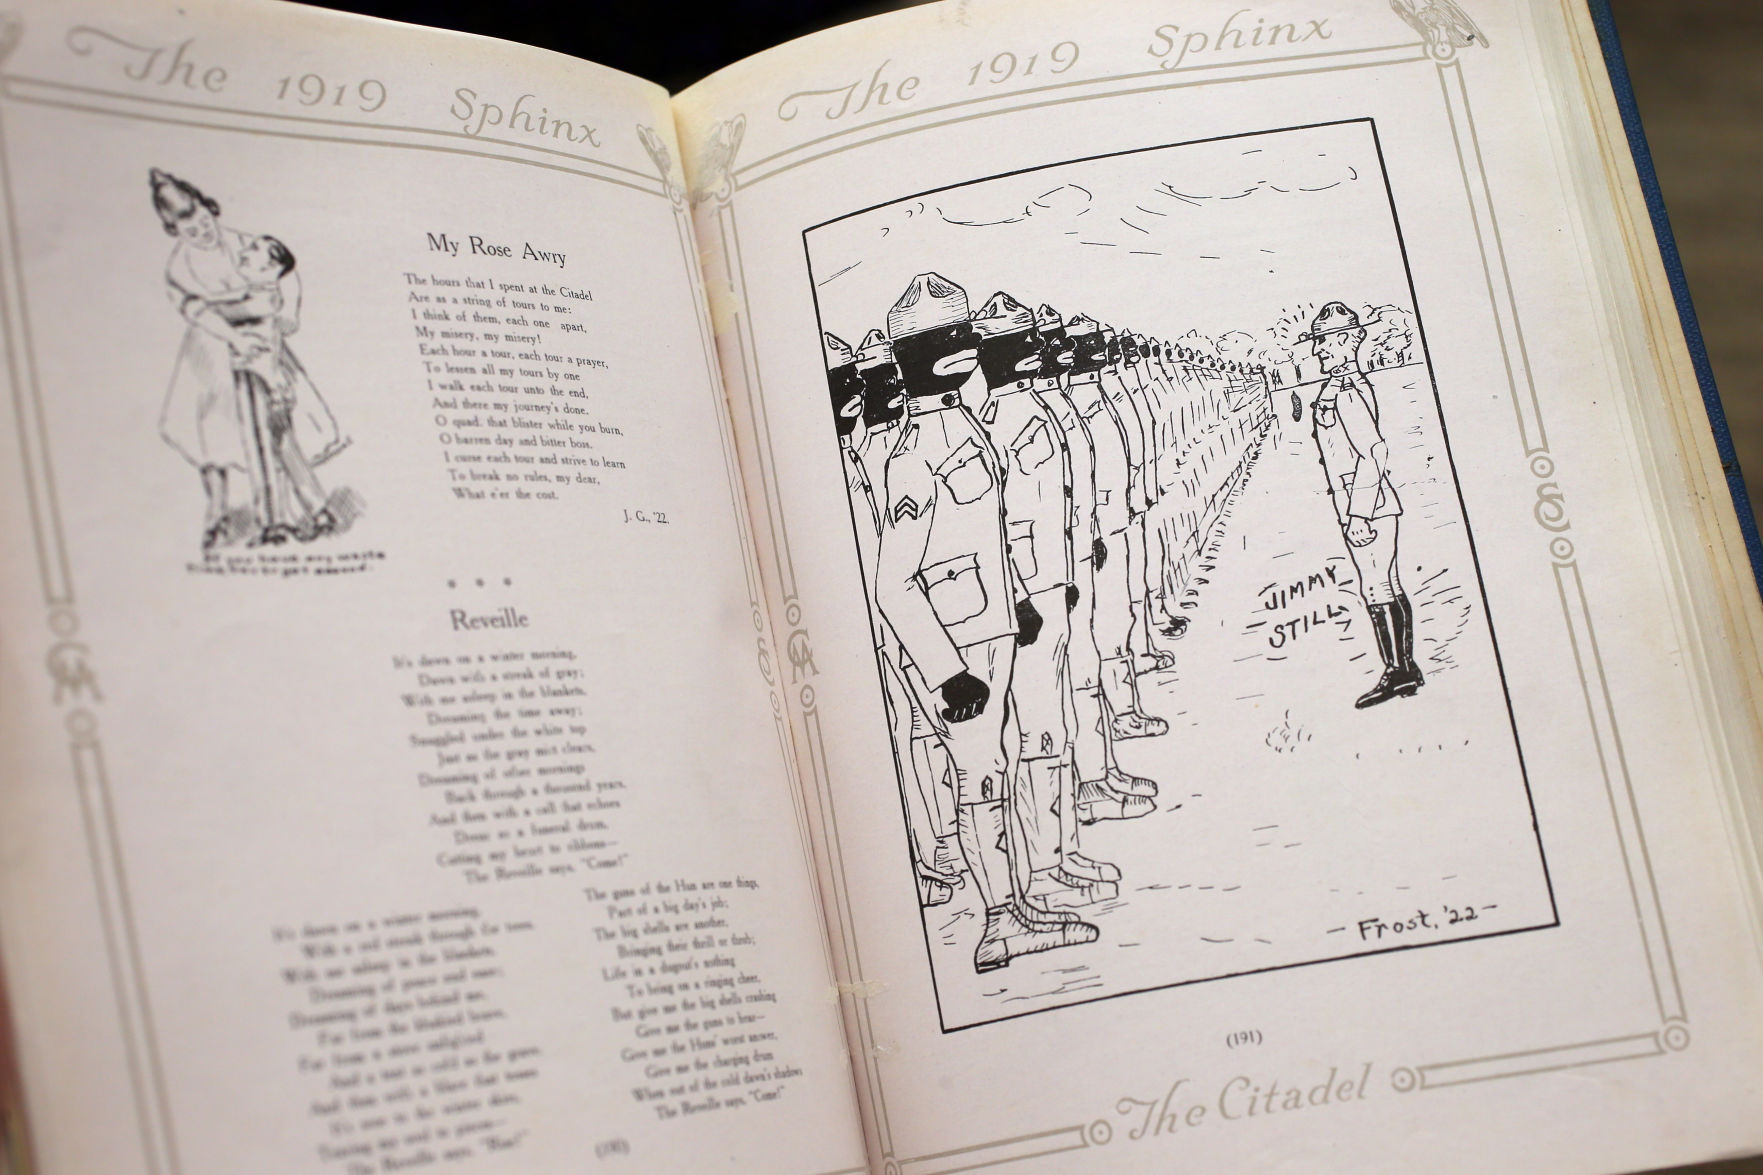 The 1919 Sphinx
My Rose Awry
The hours that I spent at the Citadel
Are as a string of tours to me:
I think of them, each one apart,
My misery, my misery!
Each hour a tour, each tour a prayer,
To lessen all my tours by one
I walk each tour unto the end,
And there my journey's done.
O quad. that blister while you burn,
O barren day and bitter boss.
I curse each tour and strive to learn
To break no rules, my dear,
What e'er the cost.
J. G., '22.
Reveille
It's dawn on a winter morning,
Dawn with a streak of gray;
With me asleep in the blankets,
Dreaming the time away;
Snuggled under the white top
Just as the gray mist clears,
Dreaming of other mornings
Back through a thousand years,
And then with a call that echoes
Dense as a funeral drum,
Cutting my heart to ribbons—
The Reveille says, "Come!"
It's dawn on a winter morning,
With a red streak through the
With me asleep in the blankets,
Dreaming of peace and
Dreaming of days behind me,
Far from the
Far from a
And a
And then with a
It's
The Reveille says,
The guns of the Hun are one thing,
Part of a big day's job;
The big shells are another,
Bringing their thrill or throb;
Life in a dugout's nothing
To bring on a ringing cheer,
But give me the big shells crashing
Give me the guns to hear—
Give me the Huns' worst answer,
Give me the charging drum
When out of the cold dawn's shadows
The Reveille says, "Come!"
(190)
The 1919 Sphinx
JIMMY
STILL
- Frost, '22 -
(191)
The Citadel